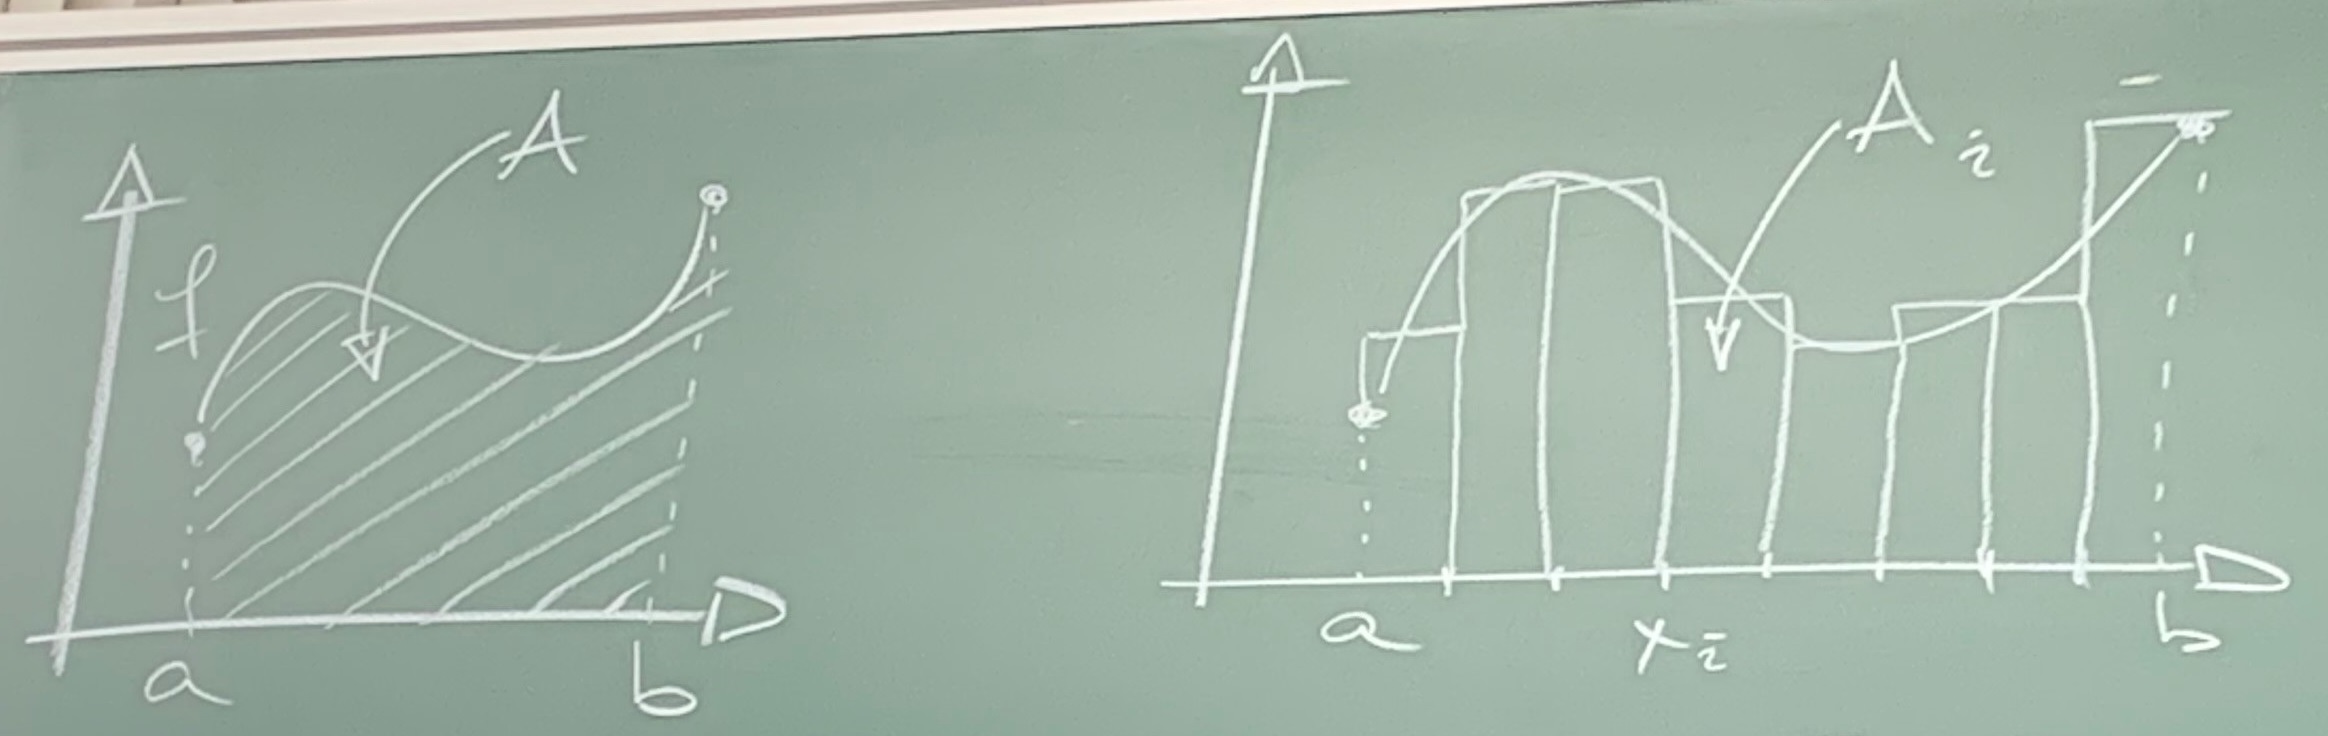 A
f
a
b
A i
a
x i
b